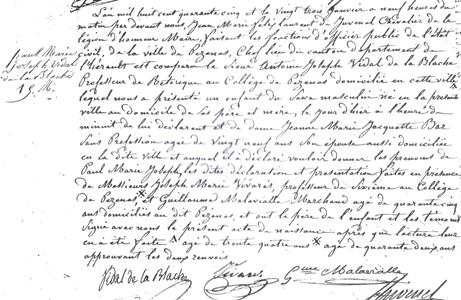 L'an mil huit cent quarante cinq et le vingt trois janvier a neuf heures du
matin par devant nous, Jean Marie Felix Laurent de Juvenel Chevalier de la
légion d'honneur Maire, faisant les fonctions d'officier public de l'état
civil, de la ville de Pezenas, Chef lieu du canton département de
l'hérault est comparu le Sieur Antoine Joseph Vidal de la Blache
Professeur de Rétorique au Collège de Pezenas domicilié en cette ville
lequel nous a présenté un enfant du Sexe masculin né en la presente
ville au domicile de ses père et mère, le jour d'hier à l'heure de
minuit de lui déclarant et de dame Jeanne Marie Jacquette Bas
Sans Profession agée de vingt neuf ans Son épouse aussi domiciliée
en la dite ville et auquel il a déclaré vouloir donner les prenoms de
Paul Marie Joseph, les dites déclaration et presentation faites en presence
de Messieurs Joseph Marie Vivarès, professeur de Sixième au Collège
de Pezenas, et Guillaume Malavialle Marchand agé de quarante cinq
ans domiciliés au dit Pezenas, et ont le père de l'enfant et les temoins
Signé avec nous le présent acte de naissance après que lecture leur
en a été faite agé de trente quatre ans agé de quarante deux ans
approuvant les deux renvois
Paul Marie
Joseph Vidal
de la Blache
Vidal de la Blache Vivarès Gme Malavialle
Juvenel